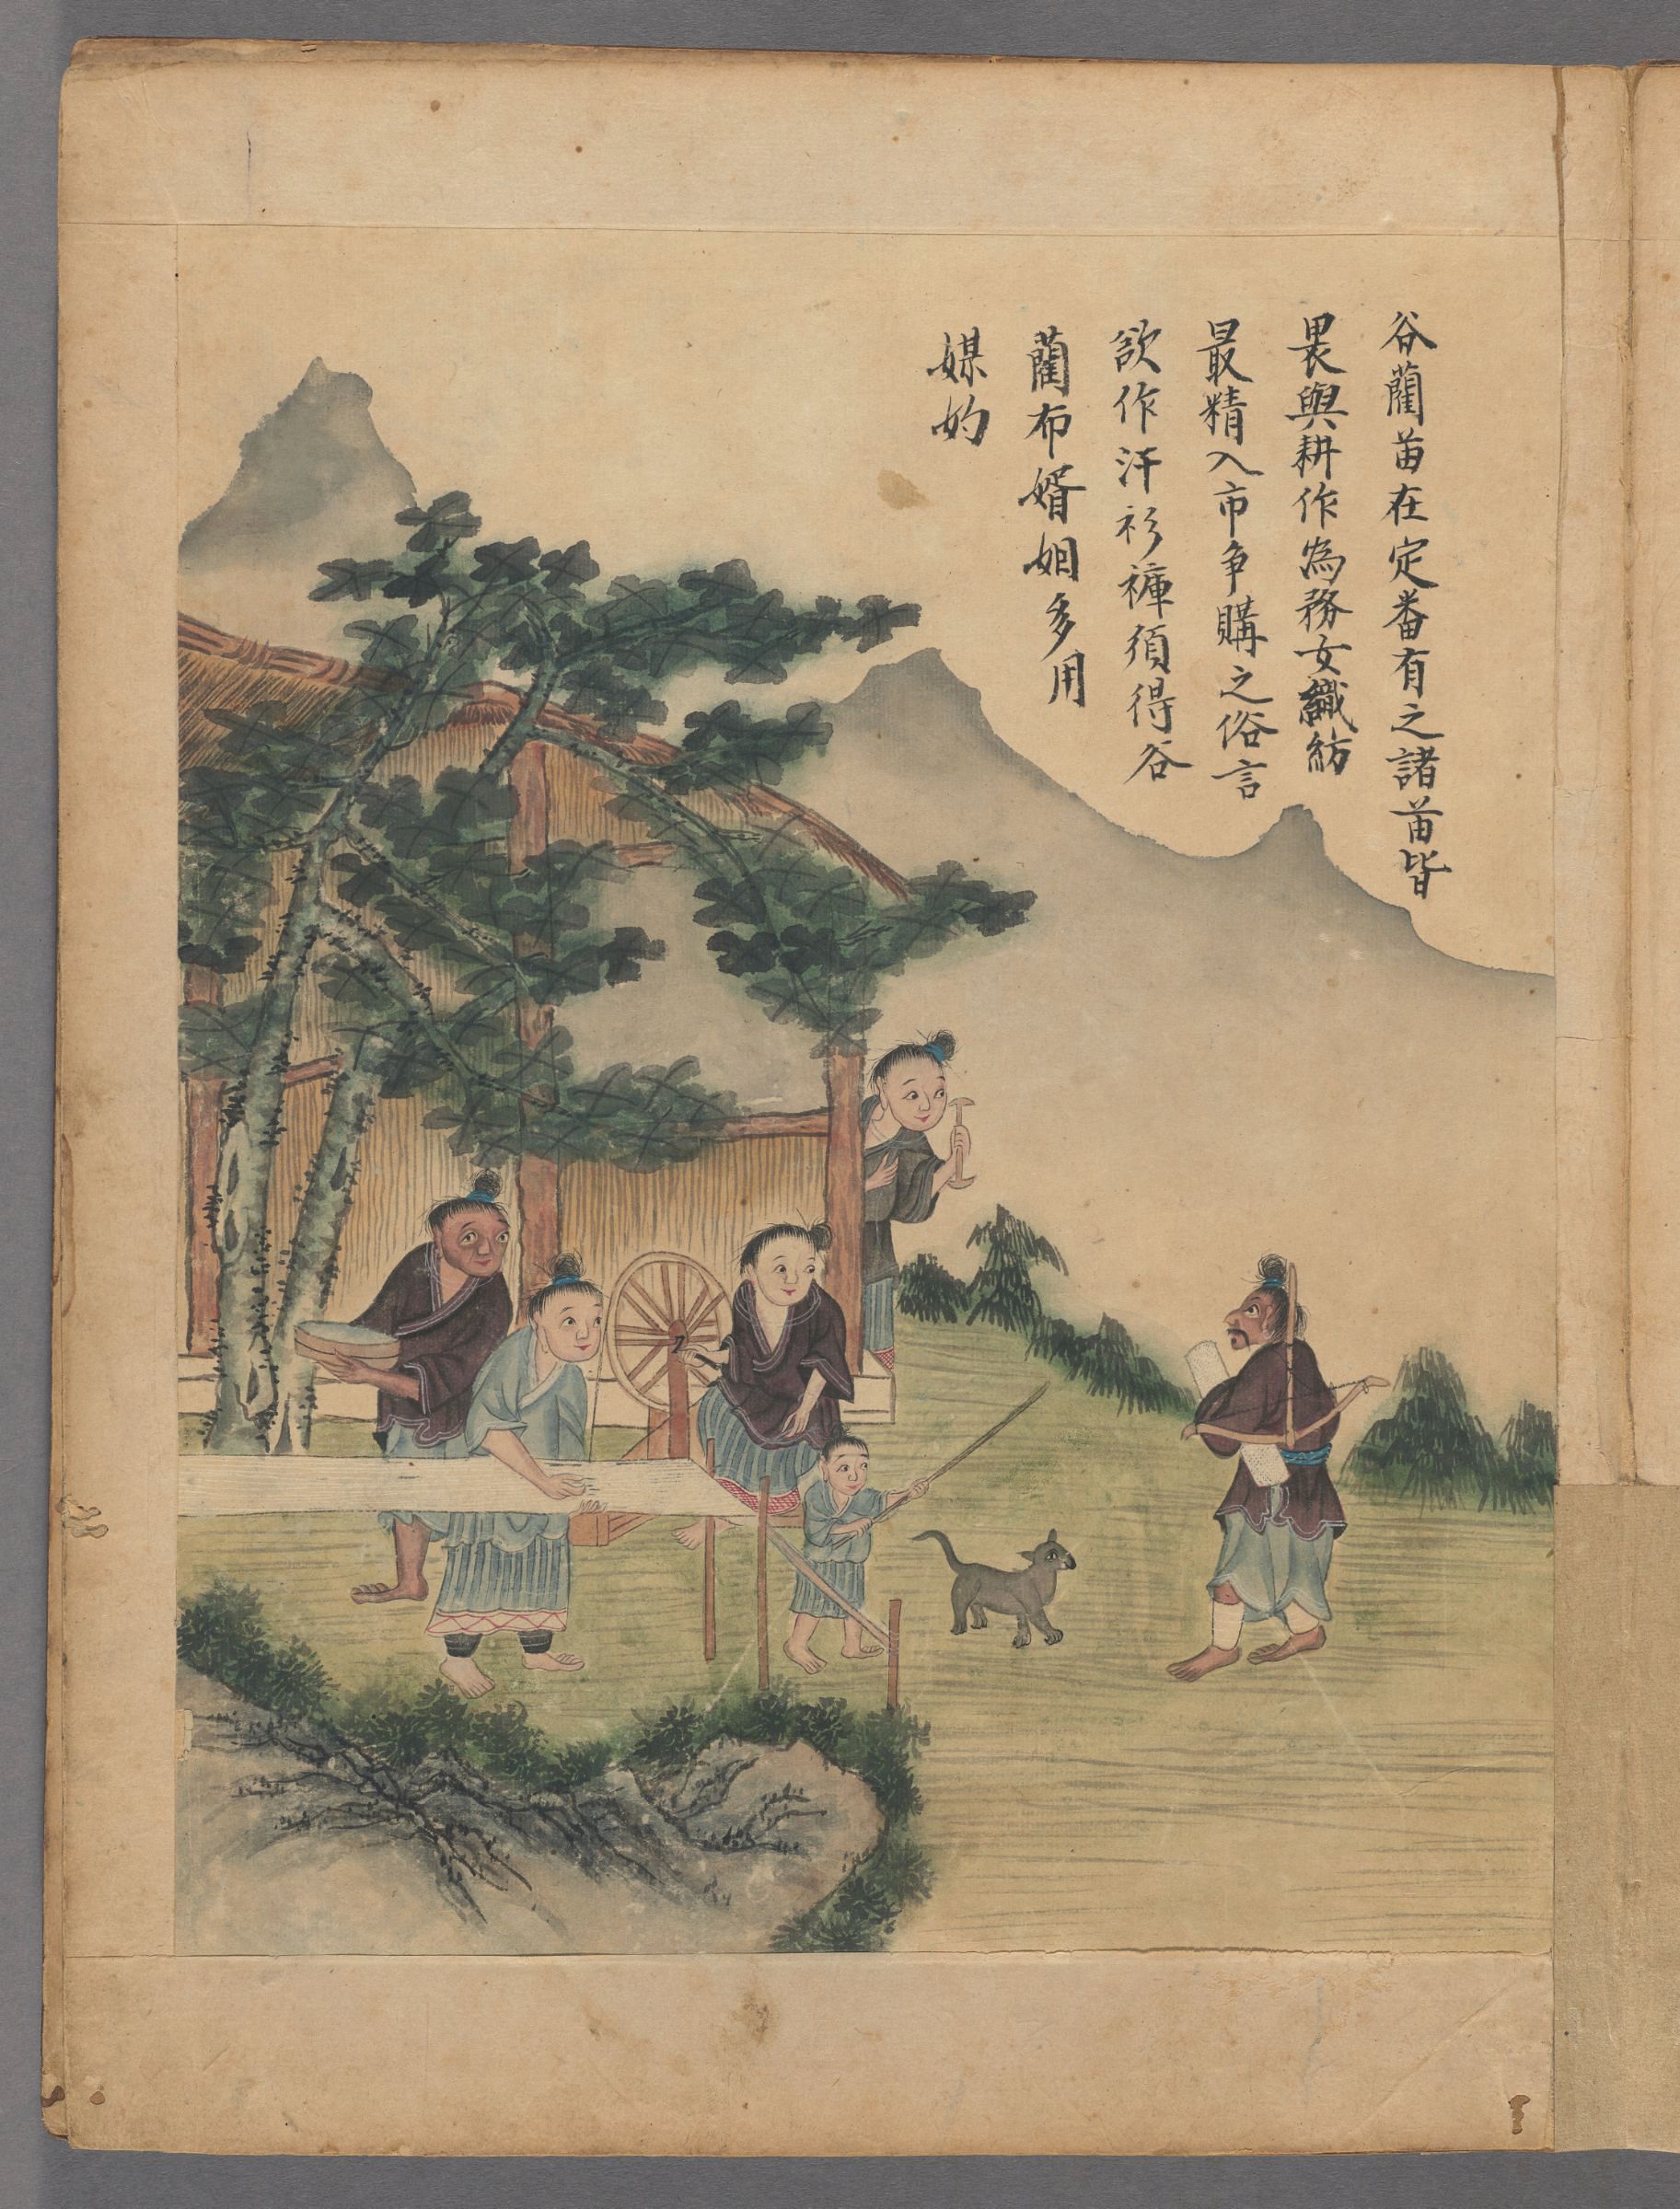 谷藺苗在定番有之諸苗皆
畏與耕作為務女織紡
最精入市争購之俗言
欲作汗衫褲須得谷
藺布婿姻多用
媒妁